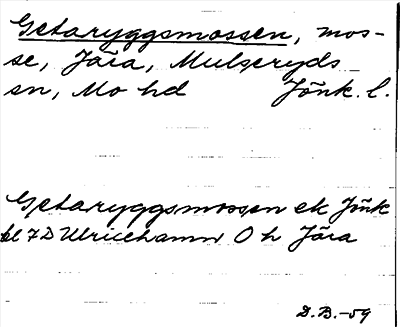 Getaryggsmossen, mos-
se, Jära, Mulseryds
sn, Mo hd Jönk. l.
Getaryggsmossen ek Jönk
bl 7D Ulricehamn O h Jära
D.B.-59